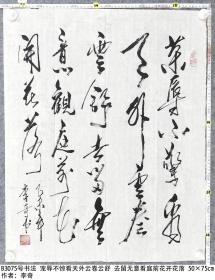 荣辱不驚看
天外雲卷
雲舒去留無
意觀庭前花
開花落
B3075号书法 宠辱不惊看天外云卷云舒 去留无意看庭前花开花落 50×75cm
作者：李奇